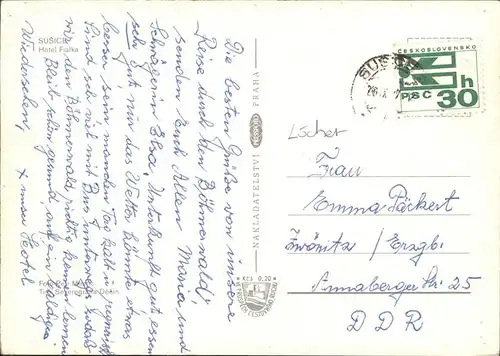 SUŠICE
Hotel Fialka
Die besten Grüße von unsere
Reise durch den Böhmerwald,
senden Euch Allen Maria und
Schwägerin Elsa, Unterkunft gut, essen
sehr gut, nur das Wetter könnte etwas
besser sein manchen Tag kalt u.
Sind sehr viel mit Bus unterwegs, sodaß
wir den Böhmerwald richtig kennen lernen
Bleibt schön gesund, und ein baldiges
Wiedersehen,
x unser Hotel
NAKLADATELSTVÍ
PRAHA
Kčs 0,20
SUŠICE
ČESKOSLOVENSKO
PSČ
30 h
Löscher
Frau
Emma Päckert
Zwönitz / Erzgb.
Annaberger Str 25
DDR